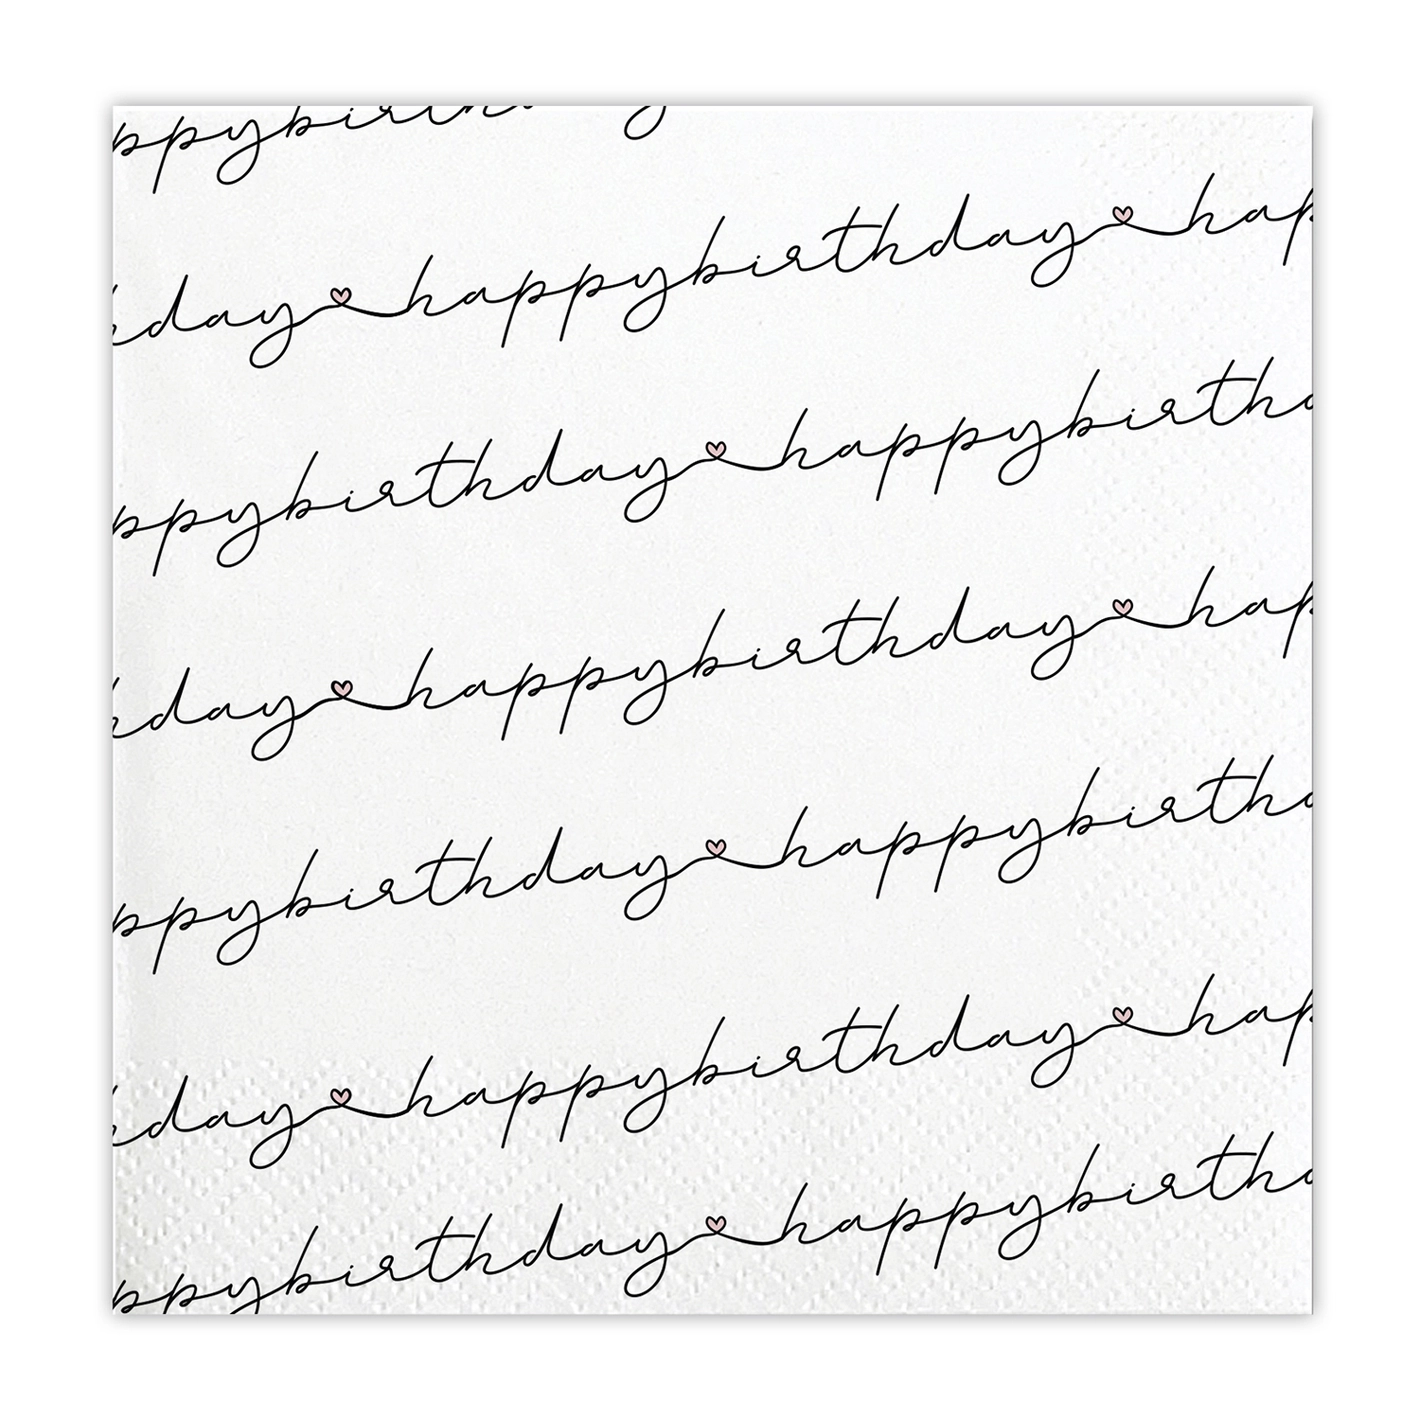 ppybirthday
hday happybirthday hap
ppybirthday happybirthd
hday happybirthday hap
ppybirthday happybirthd
hday happybirthday hap
ppybirthday happybirthd